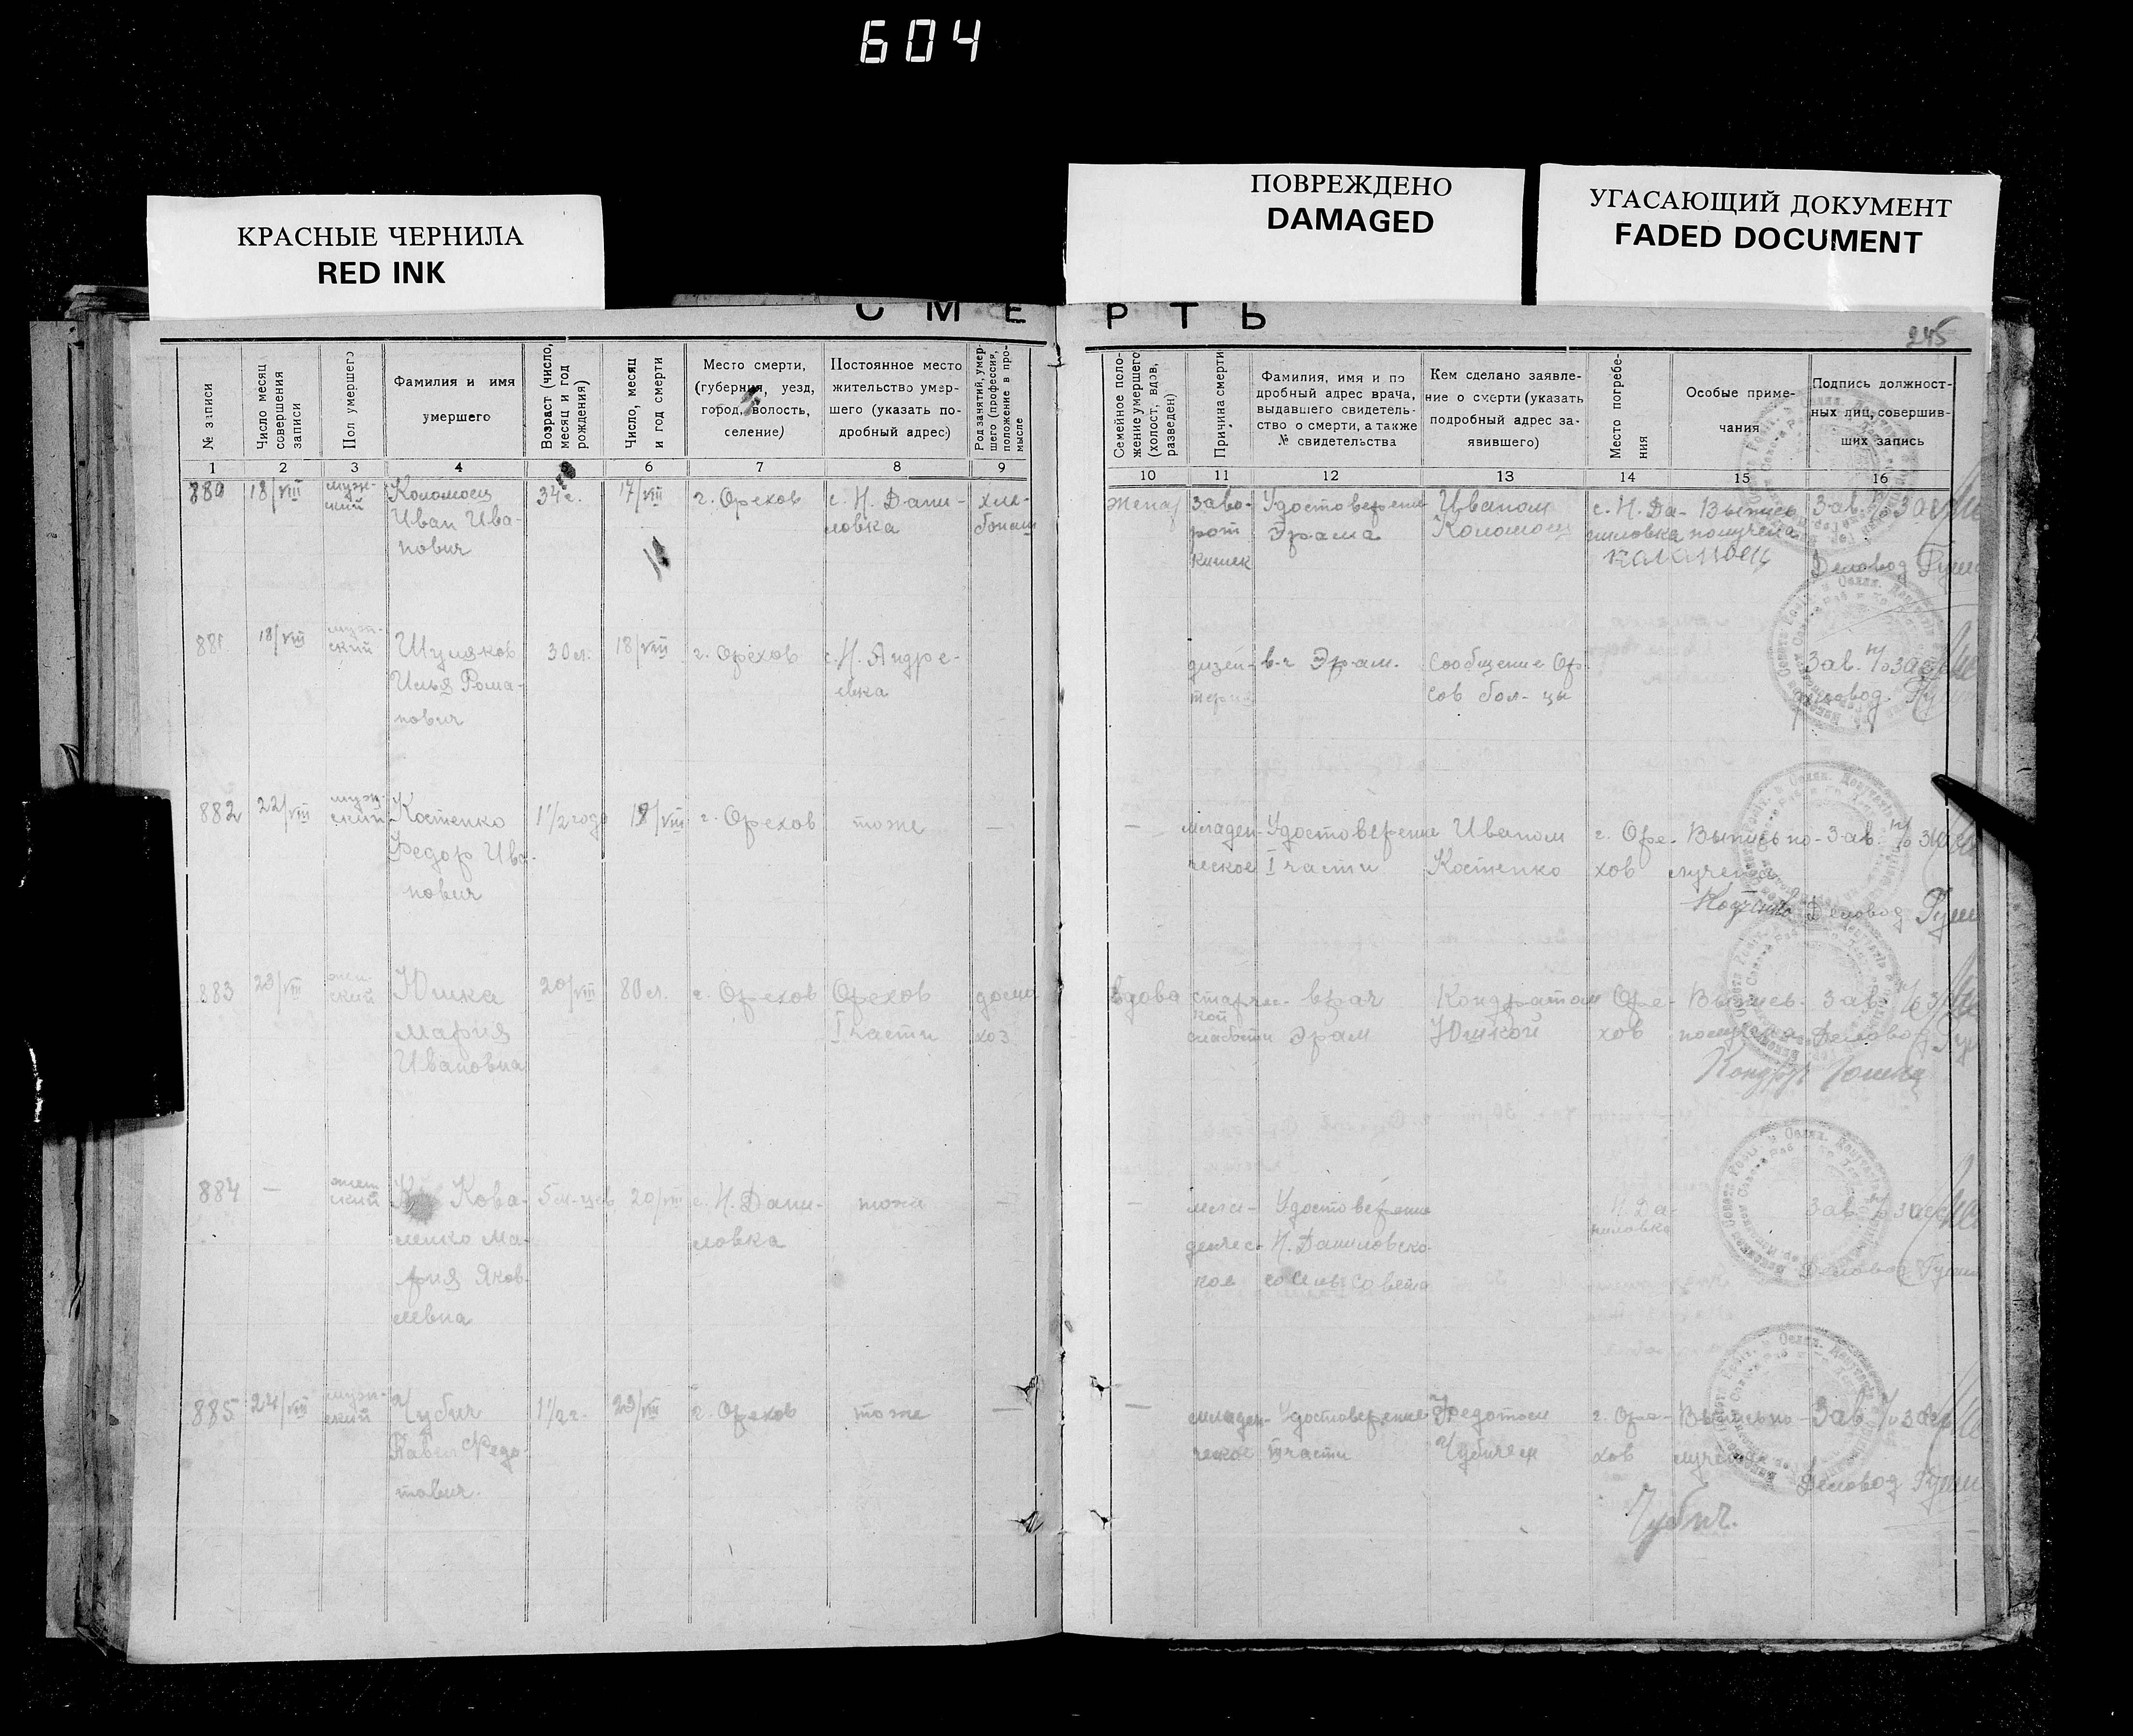 604
КРАСНЫЕ ЧЕРНИЛА
RED INK
ПОВРЕЖДЕНО
DAMAGED
УГАСАЮЩИЙ ДОКУМЕНТ
FADED DOCUMENT
СМЕРТЬ
245
№ записи
Число месяц
совершения
записи
Пол умершего
Фамилия и имя
умершего
Возраст (число,
месяц и год
рождения)
Число, месяц
и год смерти
Место смерти,
(губерния, уезд,
город, волость,
селение)
Постоянное место
жительство умер-
шего (указать по-
дробный адрес)
Род занятий, умер-
шего (профессия,
положение в про-
мысле
Семейное поло-
жение умершего
(холост, вдов,
разведен)
Причина смерти
Фамилия, имя и по
дробный адрес врача,
выдавшего свидетель-
ство о смерти, а также
№ свидетельства
Кем сделано заявле-
ние о смерти (указать
подробный адрес за-
явившего)
Место погребе-
ния
Особые приме-
чания
Подпись должност-
ных лиц, совершив-
ших запись
1 2 3 4 5 6 7 8 9 10 11 12 13 14 15 16
880
18/VIII
муж-
ский
Коломоец
Иван Ива-
нович
34 г.
17/VIII
г. Орехов
с. Н. Дани-
ловка
хле-
бопаш
Женат
заво-
рот
кишек
Удостоверение
Эрама
Иваном
Коломоец
с. Н. Да-
ниловка
Выпись
получена
Коломоец
Зав. п/о загс
Деловод
881
18/VIII
муж-
ский
Шуляков
Илья Рома-
нович
30 л.
18/VIII
г. Орехов
с. Н. Андре-
евка
дизен-
в-ч Эрам.
Сообщение Ор.
сов бол-цы
Зав. п/о загс
Деловод.
882
22/VIII
муж-
ский
Костенко
Федор Ива-
нович
1 1/2 года
18/VIII
г. Орехов
тоже
—
—
младен-
ческое
Удостоверение
I части
Иваном
Костенко
г. Оре-
хов
Выпись по-
лучена
Зав. п/о загс
Деловод
883
23/VIII
жен-
ский
Юшка
Мария
Ивановна
20/VIII
80 л.
г. Орехов
Орехов
I части
дом.
хоз
Вдова
старчес-
кой
слабости
врач
Эрам
Кондратом
Юшкой
Оре-
хов
Выпись
получена
Юшка
Зав. п/о загс
Деловод
884
—
жен
ский
Кова-
ленко Ма-
рия Яков-
левна
5 м-цев
20/VIII
с. Н. Дани-
ловка
тоже
—
—
мла-
денчес-
кое
Удостоверение
Н. Даниловско-
го сельсовета
Н. Да-
ниловка
Зав. п/о загс
Деловод
885
24/VIII
муж-
ский
Чубич
Павел Федо-
тович.
1 1/2 г.
23/VIII
г. Орехов
тоже
—
—
младен-
ческое
Удостоверение
части
Федотом
Чубичем
г. Оре-
хов
Выпись по-
лучена
Чубич.
Зав. п/о загс
Деловод